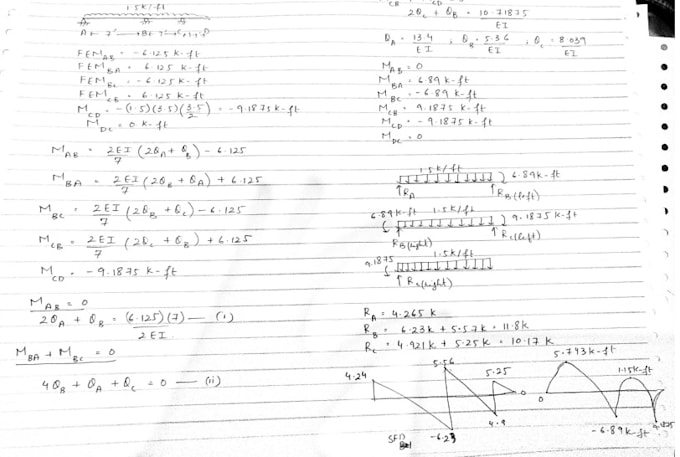 1.5 k/ft
A 7' B 7' C 3.5' D
FEM_AB = -6.125 k-ft
FEM_BA = 6.125 k-ft
FEM_BC = -6.125 k-ft
FEM_CB = 6.125 k-ft
M_CD = -(1.5)(3.5)(3.5/2) = -9.1875 k-ft
M_DC = 0 k-ft
M_AB = 2EI/7 (2θ_A + θ_B) - 6.125
M_BA = 2EI/7 (2θ_B + θ_A) + 6.125
M_BC = 2EI/7 (2θ_B + θ_C) - 6.125
M_CB = 2EI/7 (2θ_C + θ_B) + 6.125
M_CD = -9.1875 k-ft
M_AB = 0
2θ_A + θ_B = (6.125)(7)/2EI — (i)
M_BA + M_BC = 0
4θ_B + θ_A + θ_C = 0 — (ii)
CB CD
2θ_C + θ_B = 10.71875/EI
θ_A = 13.4/EI ; θ_B = 5.36/EI ; θ_C = 8.039/EI
M_AB = 0
M_BA = 6.89 k-ft
M_BC = -6.89 k-ft
M_CB = 9.1875 k-ft
M_CD = -9.1875 k-ft
M_DC = 0
1.5k/ft
6.89k-ft
R_A R_B(left)
6.89k-ft 1.5k/ft 9.1875 k-ft
R_B(right) R_C(left)
1.5k/ft
9.1875
R_C(right)
R_A = 4.265 k
R_B = 6.23k + 5.57k = 11.8k
R_C = 4.921k + 5.25k = 10.17k
4.24 5.56 5.25 0
-6.23 4.9
SFD
5.743 k-ft
1.15k-ft
0
-6.89k-ft 9.1875